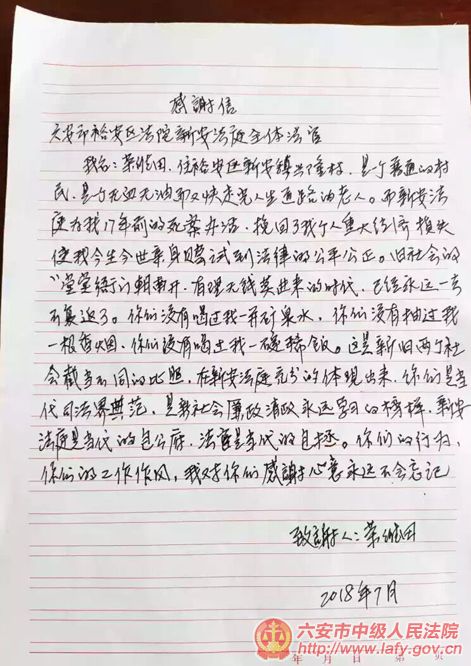 感謝信
六安市裕安区法院新安法庭全体法官
我名:荣维田,住裕安区新安镇兴隆村,是个普通的村
民,是个无边无沿即又快走完人生道路的老人。而新安法
庭为我17年前的死案办活,挽回了我个人重大经济损失
使我今生今世亲身赌试到法律的公平公正。旧社会的
“堂堂衙门朝南开,有理无钱莫进来的时代,已经永远一去
不复返了。你们没有喝过我一瓶矿泉水,你们没有抽过我
一根香烟,你们没有喝过我一碗稀饭。这是新旧两个社
会截当不同的比照,在新安法庭充分的体现出来,你们是当
代司法界典范,是新社会廉政清政永远学习的榜样,新安
法庭是当代的包公府,法官是当代的包拯。你们的行为,
你们的工作作风,我对你们感謝心意永远不会忘记
致謝人:荣维田
2018年7月
六安市中级人民法院
www.lafy.gov.cn
年 月 日 第 页